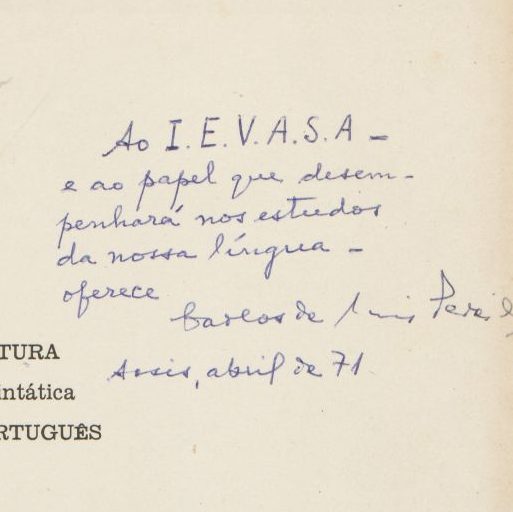 Ao I.E.V.A.S.A –
e ao papel que desem-
penhará nos estudos
da nossa língua –
oferece
Carlos de
Assis, abril de 71
TURA
intática
RTUGUÊS